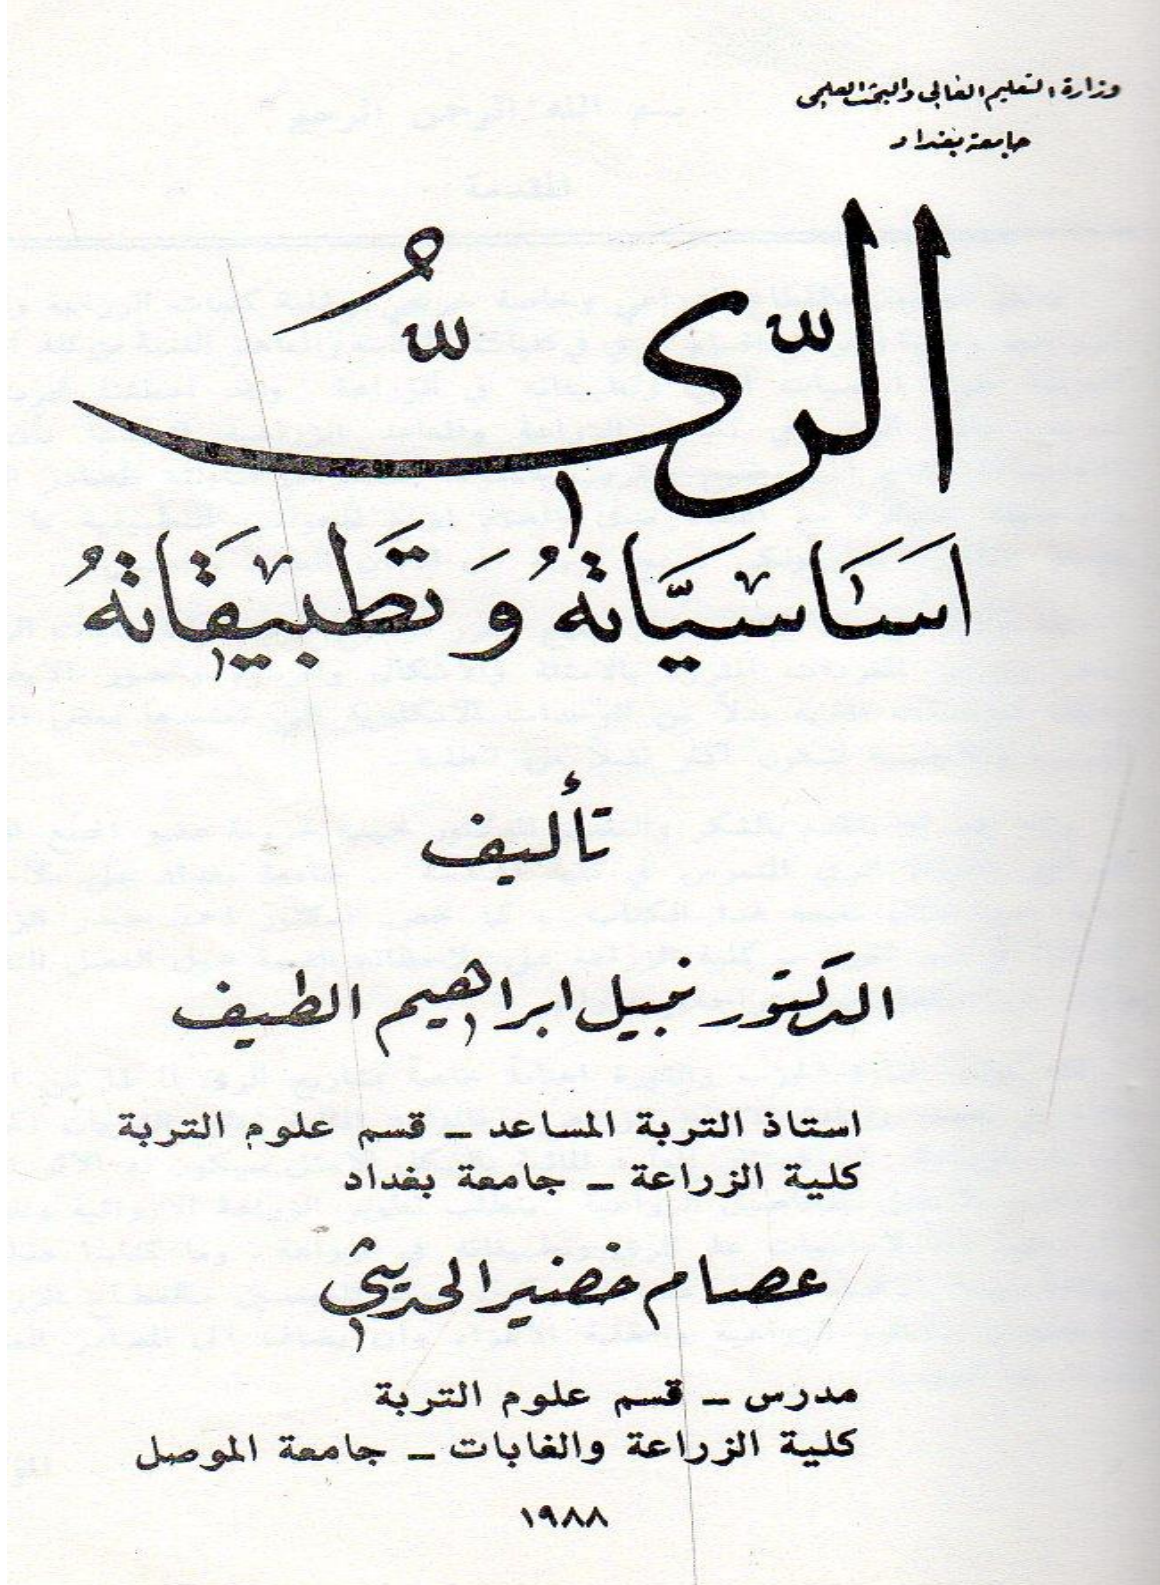 وزارة التعليم العالي والبحث العلمي
جامعة بغداد
الرّيُّ
اساسيّاتهُ وَتطبيقاتهُ
تأليف
الدكتور نبيل ابراهيم الطيف
استاذ التربة المساعد ــ قسم علوم التربة
كلية الزراعة ــ جامعة بغداد
عصام خضير الحديثي
مدرس ــ قسم علوم التربة
كلية الزراعة والغابات ــ جامعة الموصل
١٩٨٨